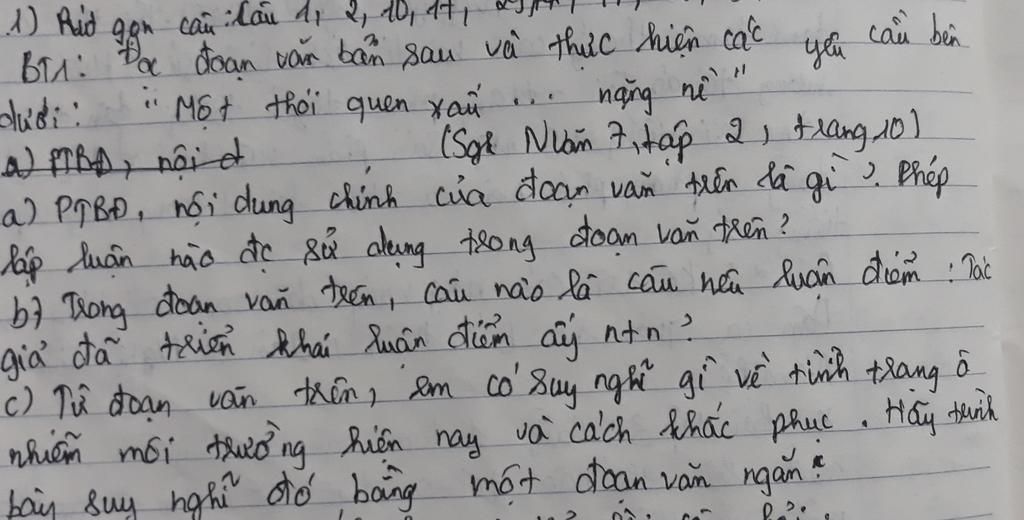 1) Rút gọn câu: Câu 1, 2, 10, 17,
BT1: Đọc đoạn văn bản sau và thực hiện các yêu cầu bên
dưới: "Một thói quen xấu ... nặng nề"
(Sgk NVăn 7, tập 2, trang 10)
a) PTBĐ, nội d
a) PTBĐ, nội dung chính của đoạn văn trên là gì? Phép
lập luận nào đc sử dụng trong đoạn văn trên?
b) Trong đoạn văn trên, câu nào là câu nêu luận điểm? Tác
giả đã triển khai luận điểm ấy ntn?
c) Từ đoạn văn trên, em có suy nghĩ gì về tình trạng ô
nhiễm môi trường hiện nay và cách khắc phục. Hãy trình
bày suy nghĩ đó bằng một đoạn văn ngắn.